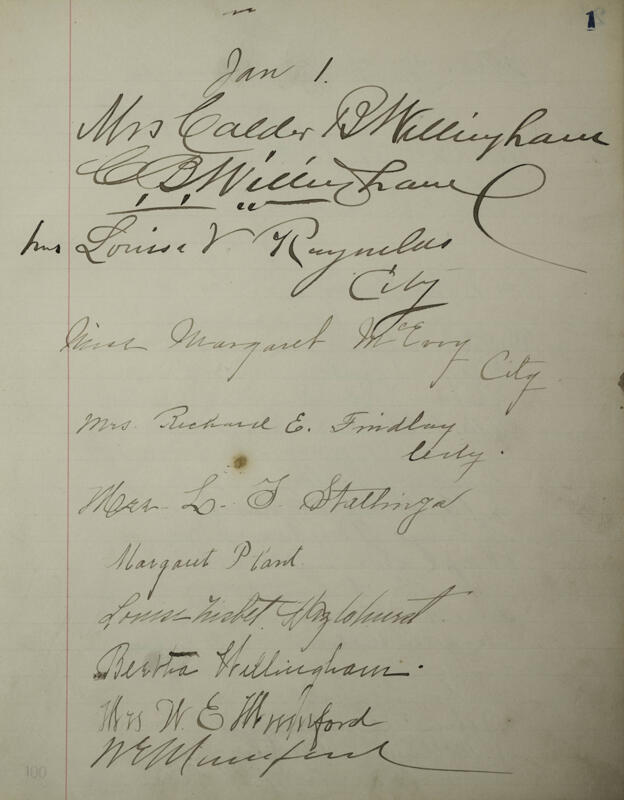 1
Jan 1.
Mrs Calder B Willingham
C B Willingham
Mrs Louisa V Raynolds
City
Miss Margaret McEvoy
City
Mrs. Richard E. Findlay
City.
Mrs. L. F. Stallings
Margaret Plant
Louise Nisbet
Bertha Willingham.
Mrs W E Mumford
W E Mumford
100